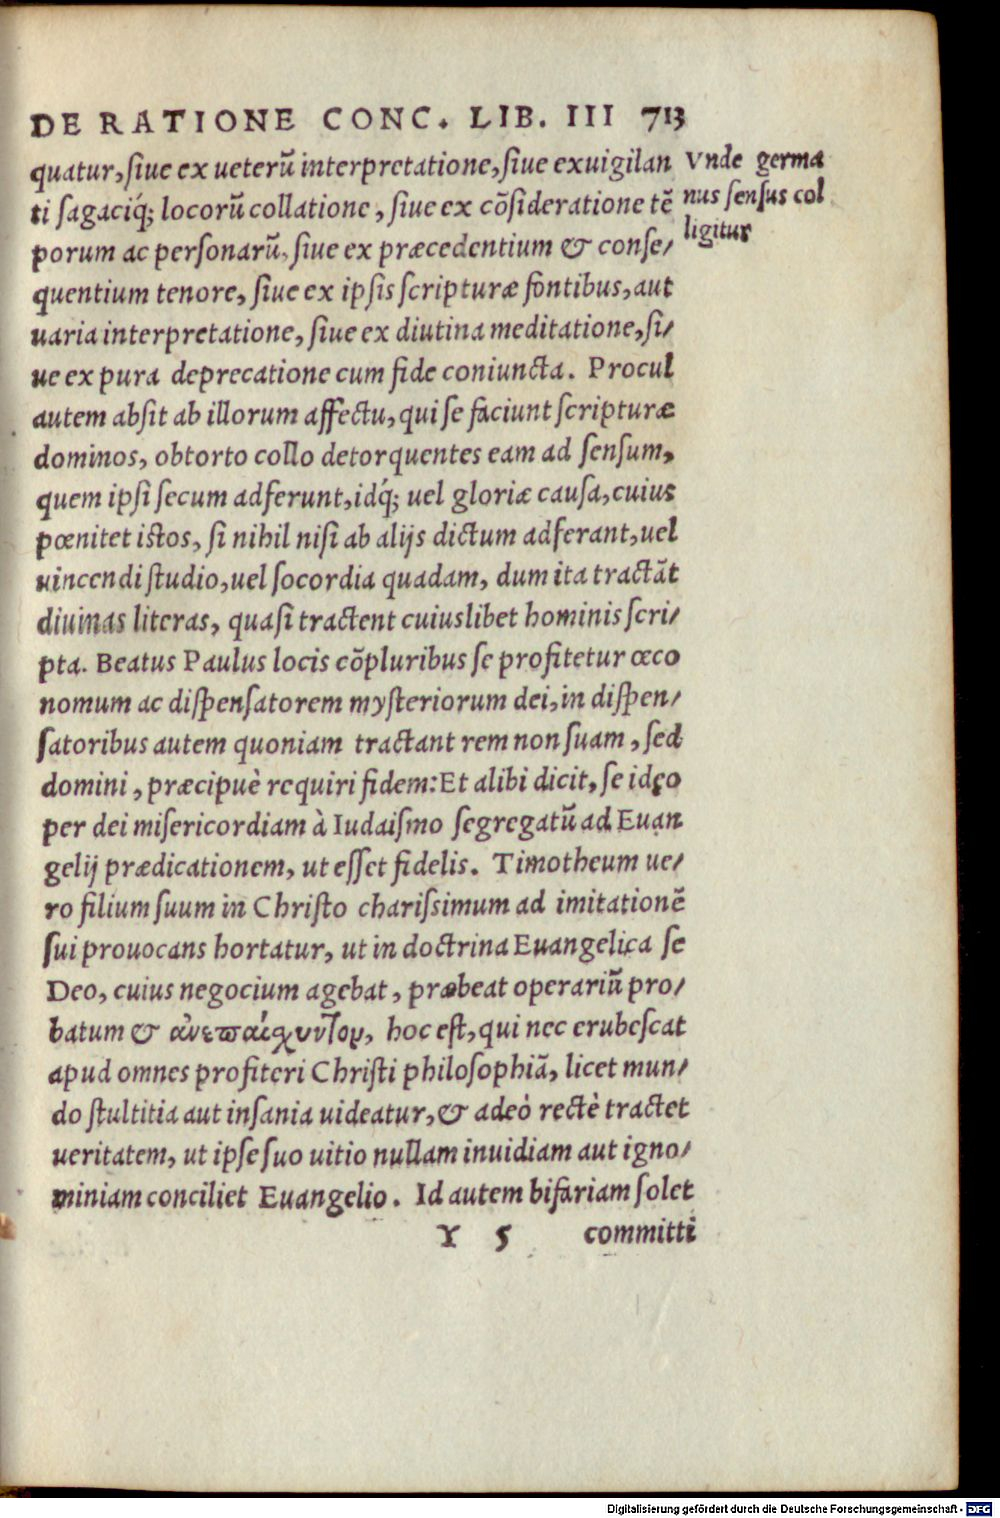 DE RATIONE CONC. LIB. III 713
quatur, ſiue ex ueterũ interpretatione, ſiue exuigilan
ti ſagaciq́; locorũ collatione, ſiue ex cõſideratione tẽ
porum ac perſonarũ, ſiue ex præcedentium & conſe/
quentium tenore, ſiue ex ipſis ſcripturæ fontibus, aut
uaria interpretatione, ſiue ex diutina meditatione, ſi/
ue ex pura deprecatione cum fide coniuncta. Procul
autem abſit ab illorum affectu, qui ſe faciunt ſcripturæ
dominos, obtorto collo detorquentes eam ad ſenſum,
quem ipſi ſecum adferunt, idq́; uel gloriæ cauſa, cuius
pœnitet iſtos, ſi nihil niſi ab alijs dictum adferant, uel
uincendi ſtudio, uel ſocordia quadam, dum ita tractãt
diuinas literas, quaſi tractent cuiuslibet hominis ſcri/
pta. Beatus Paulus locis cõpluribus ſe profitetur œco
nomum ac diſpenſatorem myſteriorum dei, in diſpen/
ſatoribus autem quoniam tractant rem non ſuam, ſed
domini, præcipuè requiri fidem: Et alibi dicit, ſe idęo
per dei miſericordiam à Iudaiſmo ſegregatũ ad Euan
gelij prædicationem, ut eſſet fidelis. Timotheum ue/
ro filium ſuum in Chriſto chariſsimum ad imitationẽ
ſui prouocans hortatur, ut in doctrina Euangelica ſe
Deo, cuius negocium agebat, præbeat operariũ pro/
batum & ἀνεπαίχυντον, hoc eſt, qui nec erubeſcat
apud omnes profiteri Chriſti philoſophiã, licet mun/
do ſtultitia aut inſania uideatur, & adeò rectè tractet
ueritatem, ut ipſe ſuo uitio nullam inuidiam aut igno/
miniam conciliet Euangelio. Id autem bifariam ſolet
Y 5 committi
Vnde germa
nus ſenſus col
ligitur
Digitalisierung gefördert durch die Deutsche Forschungsgemeinschaft - DFG